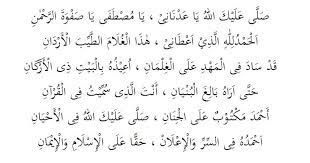 صَلَّى عَلَيْكَ اللهُ يَا عَدْنَانِىْ ، يَا مُصْطَفَى يَا صَفْوَةَ الرَّحْمٰنِ
اَلْحَمْدُلِلّٰهِ الَّذِيْ اَعْطَانِىْ ، هٰذَا الْغُلَامَ الطَّيِّبَ الْأَرْدَانِ
قَدْ سَادَ فِى الْمَهْدِ عَلَى الْغِلْمَانِ ، أُعِيْذُهُ بِالْبَيْتِ ذِى الْأَرْكَانِ
حَتَّى أَرَاهُ بَالِغَ الْبُنْيَانِ ، أَنْتَ الَّذِى سُمِّيْتَ فِى الْقُرْآنِ
أَحْمَدَ مَكْتُوْبٌ عَلَى الْجِنَانِ ، صَلَّى عَلَيْكَ اللهُ فِى الْأَحْيَانِ
اَحْمَدُهُ فِى السِّرِّ وَالْإِعْلَانِ ، حَقًّا عَلَى الْإِسْلَامِ وَالْإِيْمَانِ